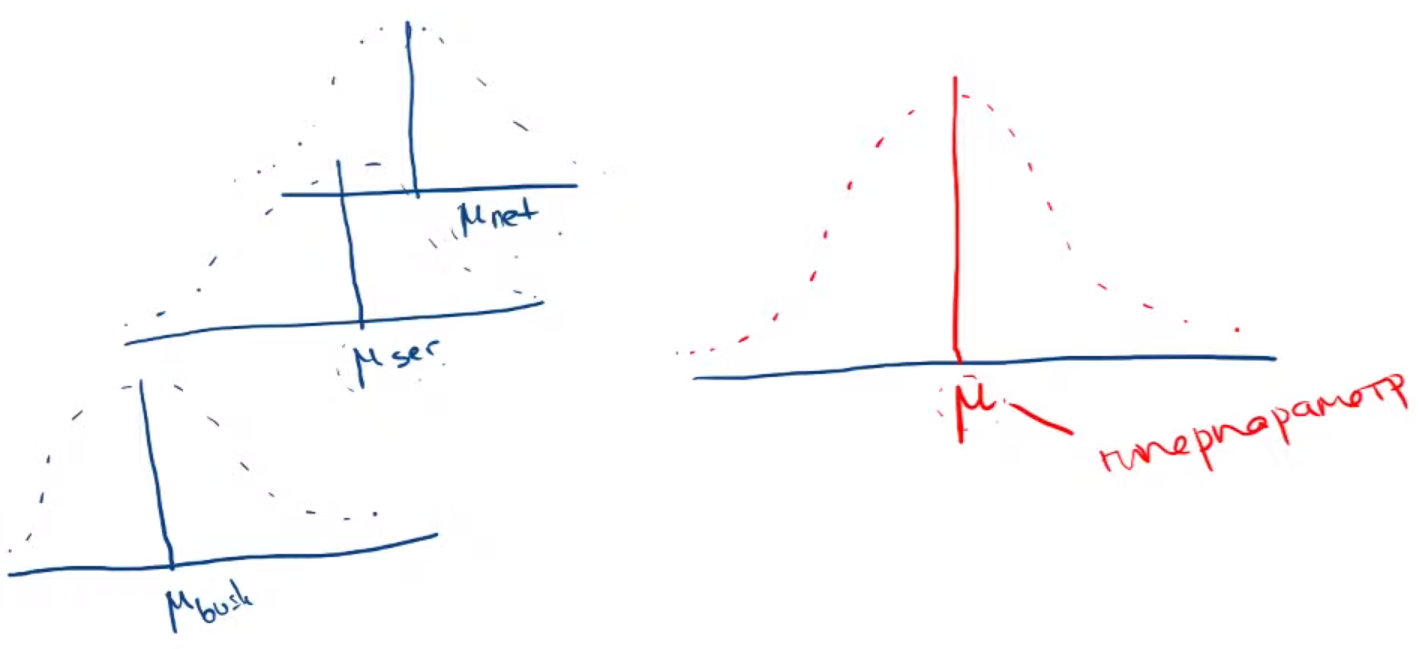 μnet
μser
μbush
μ
гиперпараметр